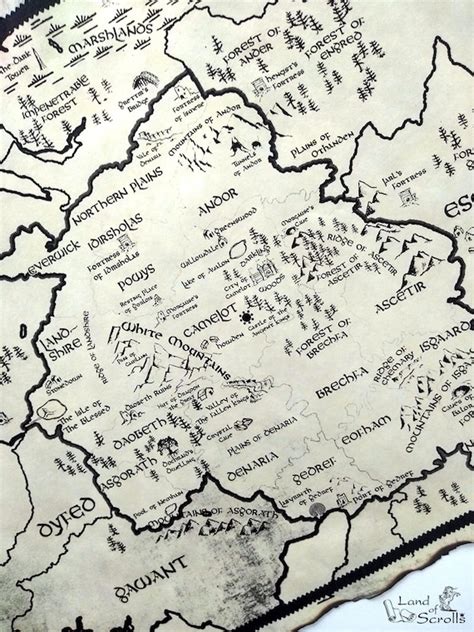 The Dark
Tower
MARSHLANDS
IMPENETRABLE
FOREST
FOREST OF
ANDER
FOREST OF
ENGRED
HENGIST'S
FORTRESS
BRIDGE
FORTRESS
MOUNTAINS OF ANDOR
ISLE OF
TUNNELS
OF ANDOR
PLAINS OF
OTHANDEN
JARL'S
FORTRESS
NORTHERN PLAINS
ANDOR
EVERWICK
IDIRSHOLAS
FORTRESS
OF IDIRSHOLAS
QUEENSWOOD
WILLOWDALE
ISLE OF AVALON
MORGAUSE'S
CAVE
RIDGE OF ASCETIR
FOREST OF
ASCETIR
ASCETIR
POWYS
DARKLING
WOODS
CITY OF
CAMELOT
MORGAUSE'S
FORTRESS
CAMELOT
CASTLE OF THE
ANCIENT KINGS
LAND-
SHIRE
RIDGE OF LANDSHIRE
WHITE MOUNTAINS
FOREST OF
BRECHFA
BRECHFA
RIDGE OF
CHEMARY
MOUNTAINS OF ISGAARD
THE ISLE OF
THE BLESSED
DAOBETH RUINS
DAOBETH
VALLEY OF
THE FALLEN KINGS
CRYSTAL
CAVE
PLAINS OF DENARIA
DENARIA
EOTHAM
ASGORATH
DWELLING
GEDREF
LABYRINTH
OF GEDREF
PORT OF GEDREF
POOL OF NEMHAIN
MOUNTAINS OF ASGORATH
DYFED
GAWANT
Land
of
Scrolls